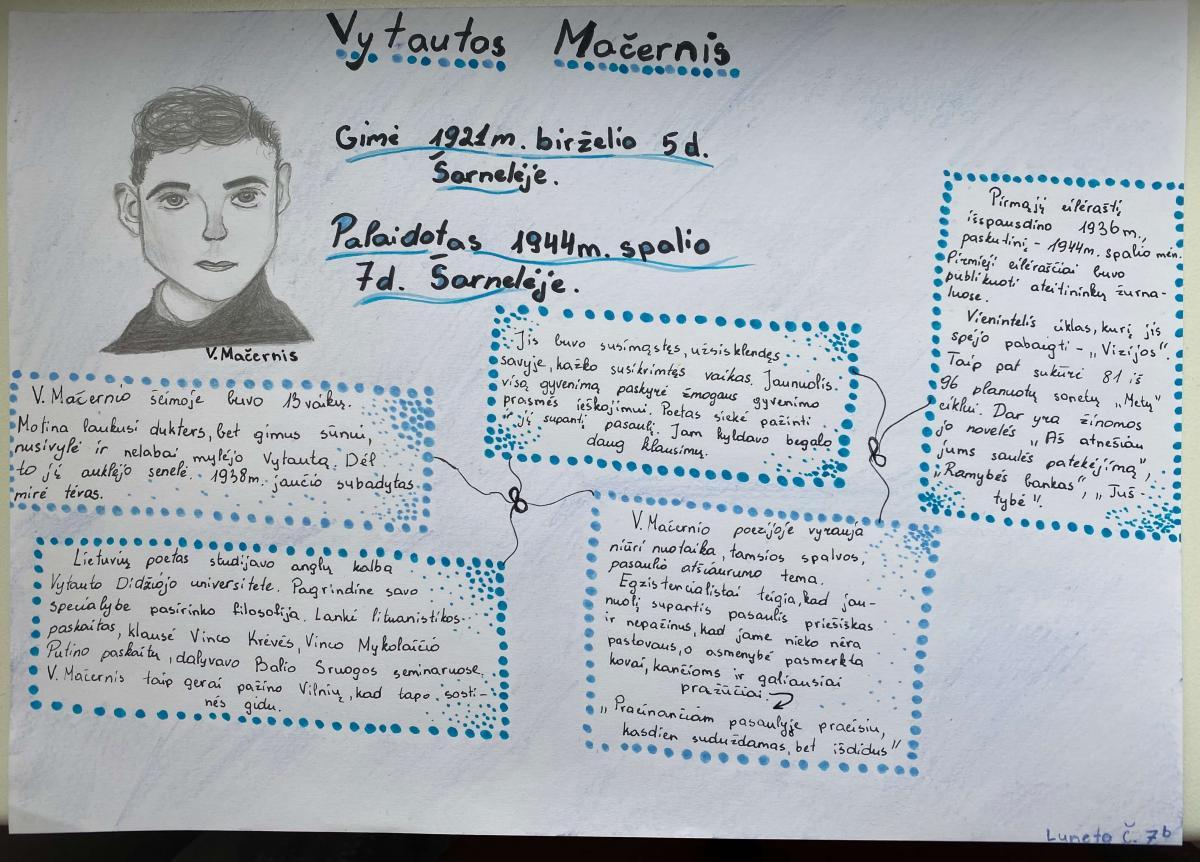 Vytautas Mačernis
Gimė 1921m. birželio 5d.
Šarnelėje.
Palaidotas 1944m. spalio
7d. Šarnelėje.
V.Mačernis
V. Mačernio šeimoje buvo 13 vaikų.
Motina laukusi dukters, bet gimus sūnui,
nusivylė ir nelabai mylėjo Vytautą. Dėl
to jį auklėjo senelė. 1938m. jaučio subadytas
mirė tėvas.
Jis buvo susimąstęs, užsisklendęs
savyje, kažko susikrimtęs vaikas. Jaunuolis
visą gyvenimą paskyrė žmogaus gyvenimo
prasmės ieškojimui. Poetas siekė pažinti
jį supantį pasaulį. Jam kildavo begalo
daug klausimų.
Pirmąjį eilėraštį
išspausdino 1936m.,
paskutinį - 1944m. spalio mėn.
Pirmieji eilėraščiai buvo
publikuoti ateitininkų žurna-
luose.
Vienintelis ciklas, kurį jis
spėjo pabaigti - „Vizijos".
Taip pat sukūrė 81 iš
96 planuotų sonetų „Metų"
ciklui. Dar yra žinomos
jo novelės „Aš atnešiau
jums saulės patekėjimą",
„Ramybės bankas", „Tuš-
tybė".
Lietuvių poetas studijavo anglų kalbą
Vytauto Didžiojo universitete. Pagrindine savo
specialybe pasirinko filosofiją. Lankė lituanistikos
paskaitas, klausė Vinco Krėvės, Vinco Mykolaičio
Putino paskaitų, dalyvavo Balio Sruogos seminaruose.
V. Mačernis taip gerai pažino Vilnių, kad tapo sosti-
nės gidu.
V. Mačernio poezijoje vyrauja
niūri nuotaika, tamsios spalvos,
pasaulio atšiaurumo tema.
Egzistencialistai teigia, kad jau-
nuolį supantis pasaulis priešiškas
ir nepažinus, kad jame nieko nėra
pastovaus, o asmenybė pasmerkta
kovai, kančioms ir galiausiai
pražūčiai.
„Praeinančiam pasaulyje praeisiu,
kasdien sudūždamas, bet išdidus"
Luneta Č. 7b